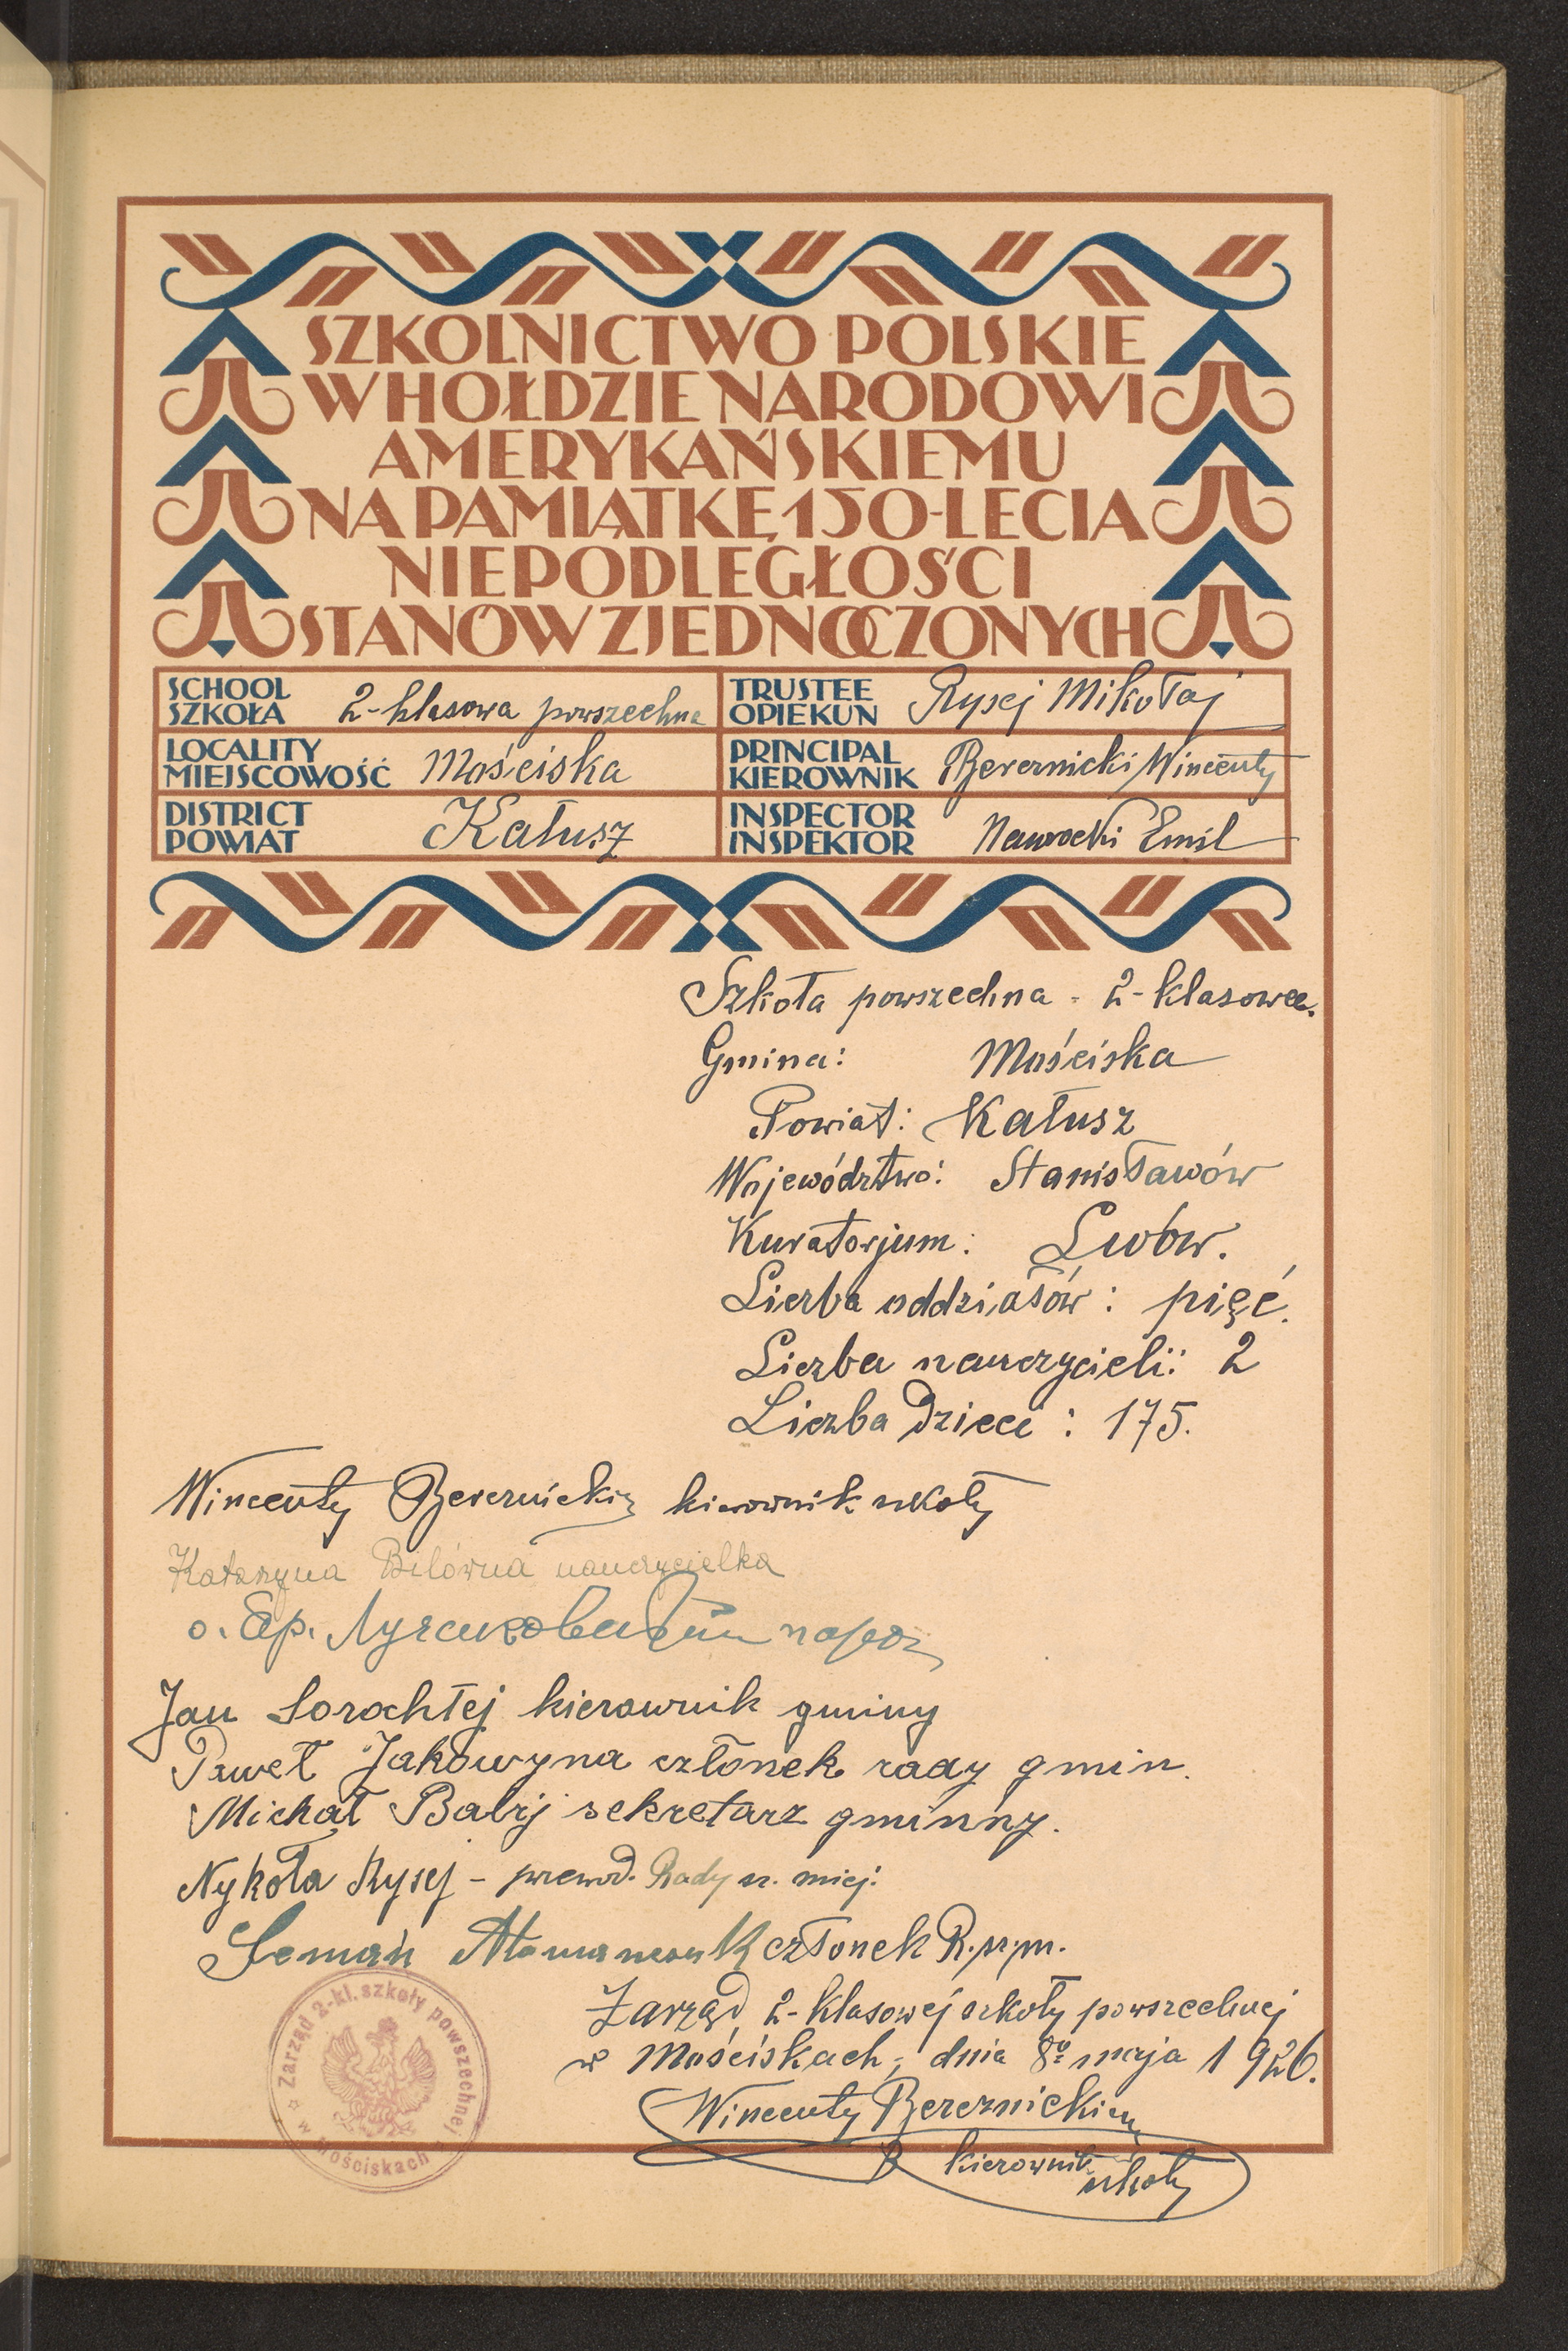 SZKOLNICTWO POLSKIE
W HOŁDZIE NARODOWI
AMERYKAŃSKIEMU
NA PAMIĄTKĘ 150-LECIA
NIEPODLEGŁOŚCI
STANÓW ZJEDNOCZONYCH
SCHOOL
SZKOŁA 2-klasowa powszechna
TRUSTEE
OPIEKUN Rysej Mikołaj
LOCALITY
MIEJSCOWOŚĆ Mościska
PRINCIPAL
KIEROWNIK Bereznicki Wincenty
DISTRICT
POWIAT Kałusz
INSPECTOR
INSPEKTOR Nawrocki Emil
Szkoła powszechna - 2-klasowa.
Gmina: Mościska
Powiat: Kałusz
Województwo: Stanisławów
Kuratorjum: Lwów.
Liczba oddziałów: pięć.
Liczba nauczycieli: 2
Liczba dzieci: 175.
Wincenty Bereznicki kierownik szkoły
Katarzyna Bilówna nauczycielka
Jan Sorochtej kierownik gminy
Paweł Jakowyna członek rady gmin.
Michał Babij sekretarz gminny.
Nykoła Rysej - przewod. Rady sz. miej.
Seman członek R. sz. m.
Zarząd 2-klasowej szkoły powszechnej
w Mościskach, dnia 8º maja 1926.
Wincenty Bereznicki
kierownik
szkoły
Zarząd 2-kl. szkoły powszechnej
w Mościskach